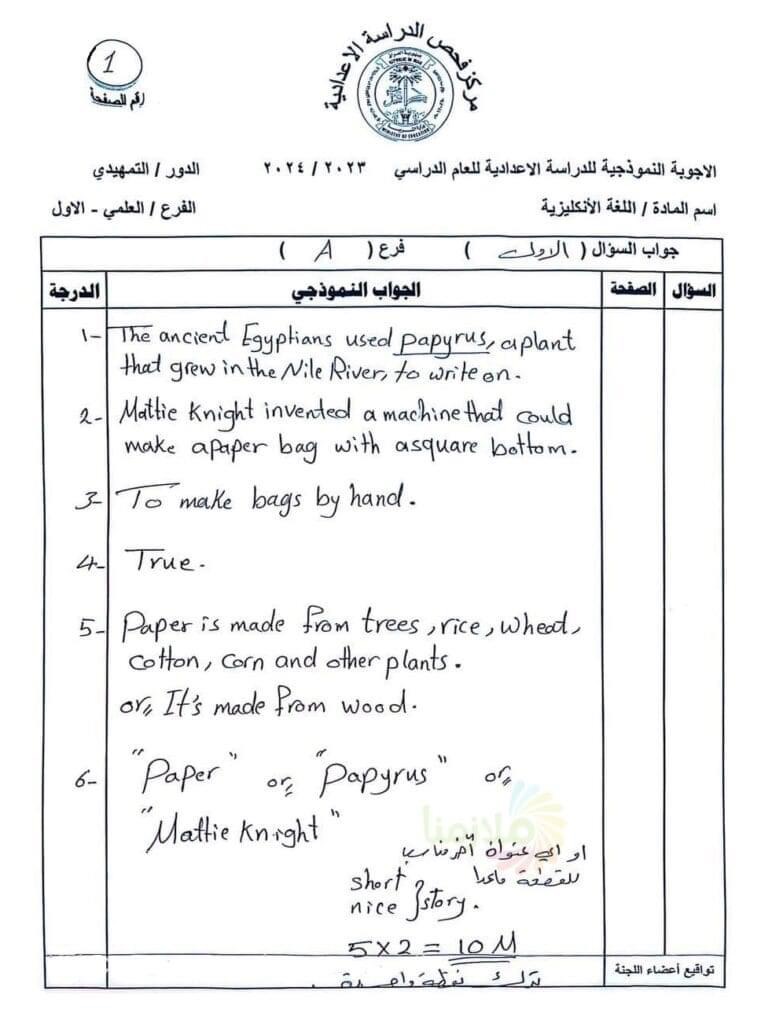 1
رقم الصفحة
مركز فحص الدراسة الاعدادية
الاجوبة النموذجية للدراسة الاعدادية للعام الدراسي ٢٠٢٣ / ٢٠٢٤ الدور / التمهيدي
اسم المادة / اللغة الأنكليزية الفرع / العلمي - الاول
جواب السؤال ( الاول ) فرع ( A )
السؤال الصفحة الجواب النموذجي الدرجة
1- The ancient Egyptians used papyrus, a plant
that grew in the Nile River, to write on.
2- Mattie Knight invented a machine that could
make a paper bag with a square bottom.
3- To make bags by hand.
4- True.
5- Paper is made from trees, rice, wheat,
cotton, corn and other plants.
or, It's made from wood.
6- "Paper" or, "Papyrus" or,
"Mattie Knight"
ملازمنا
او اي عنوان آخر مناسب
للقطعة ماعدا
short
nice } story.
5 x 2 = 10 M
تواقيع أعضاء اللجنة
تترك نقطة واحدة.